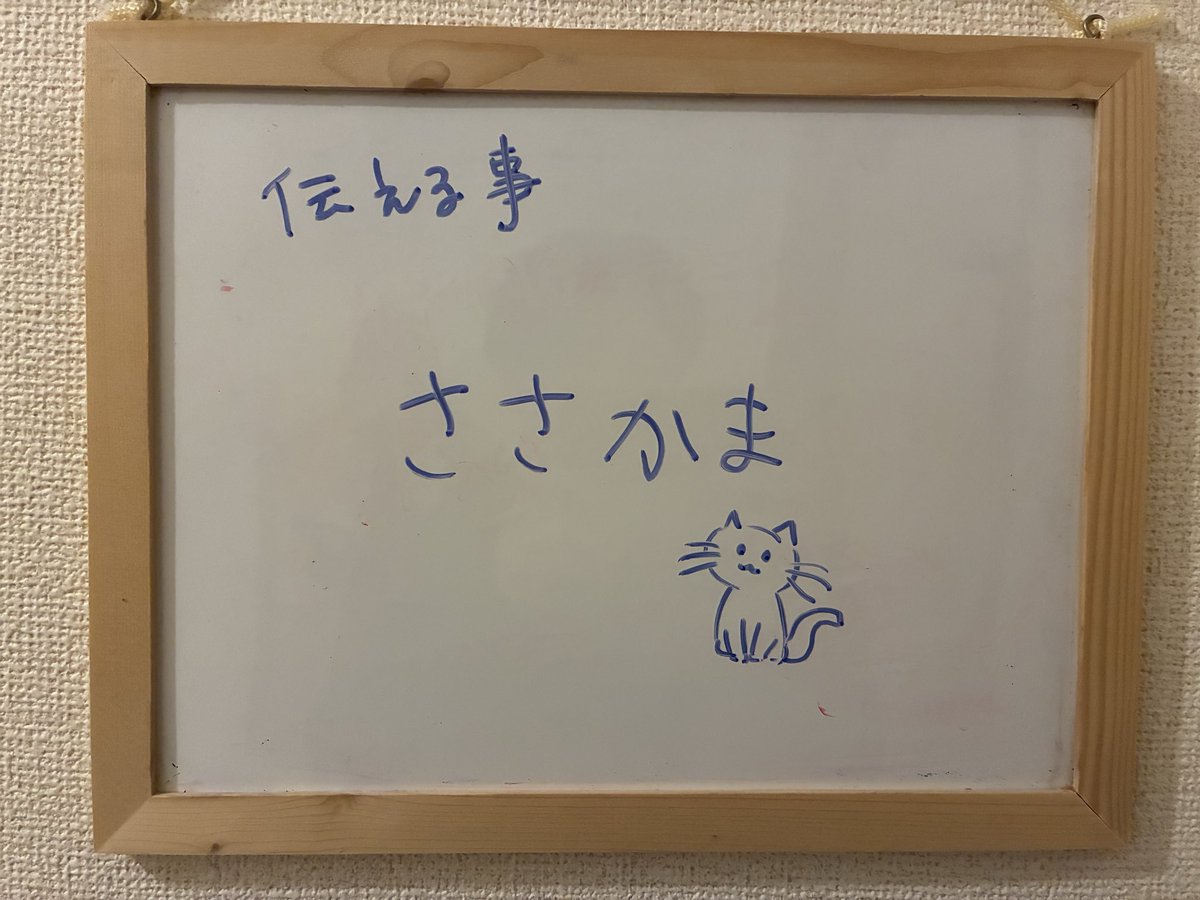 伝える事
ささかま